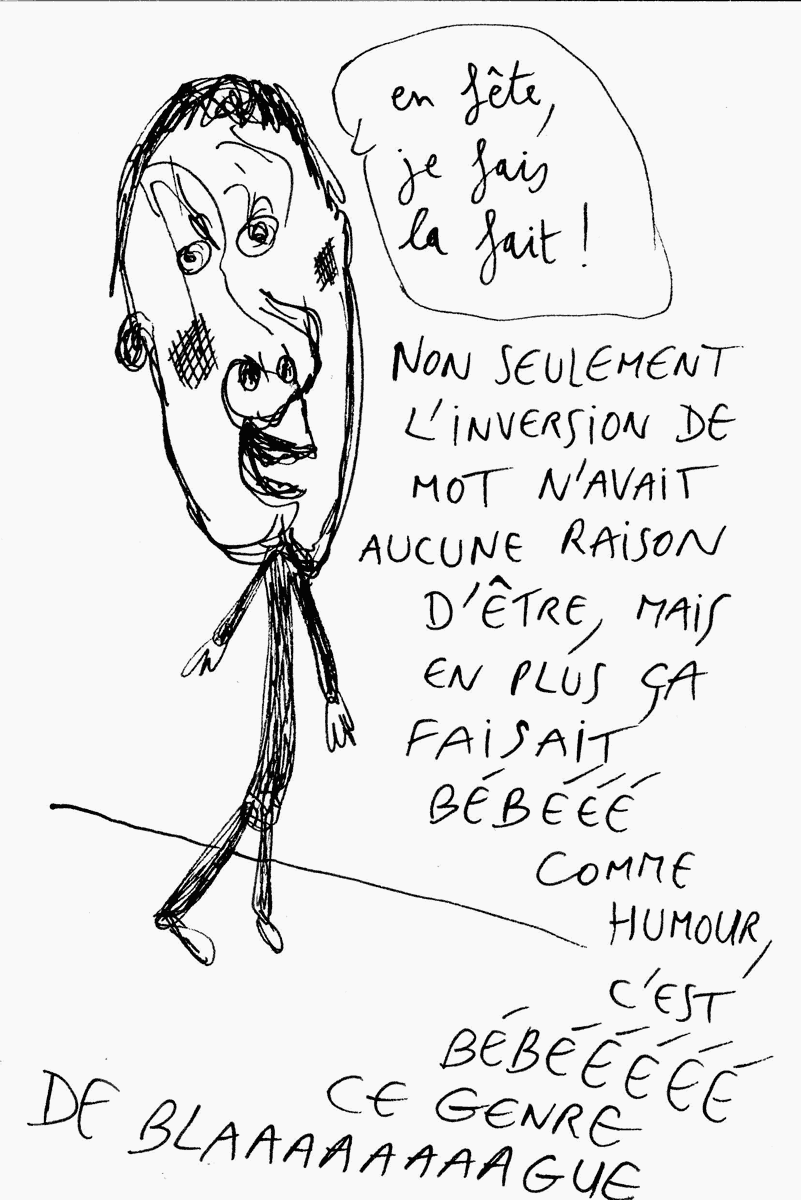 en fête,
je fais
la fait !
NON SEULEMENT
L'INVERSION DE
MOT N'AVAIT
AUCUNE RAISON
D'ÊTRE, MAIS
EN PLUS ÇA
FAISAIT
BÉBÉÉÉ
COMME
HUMOUR,
C'EST
BÉBÉÉÉÉÉ
CE GENRE
DE BLAAAAAAAAGUE